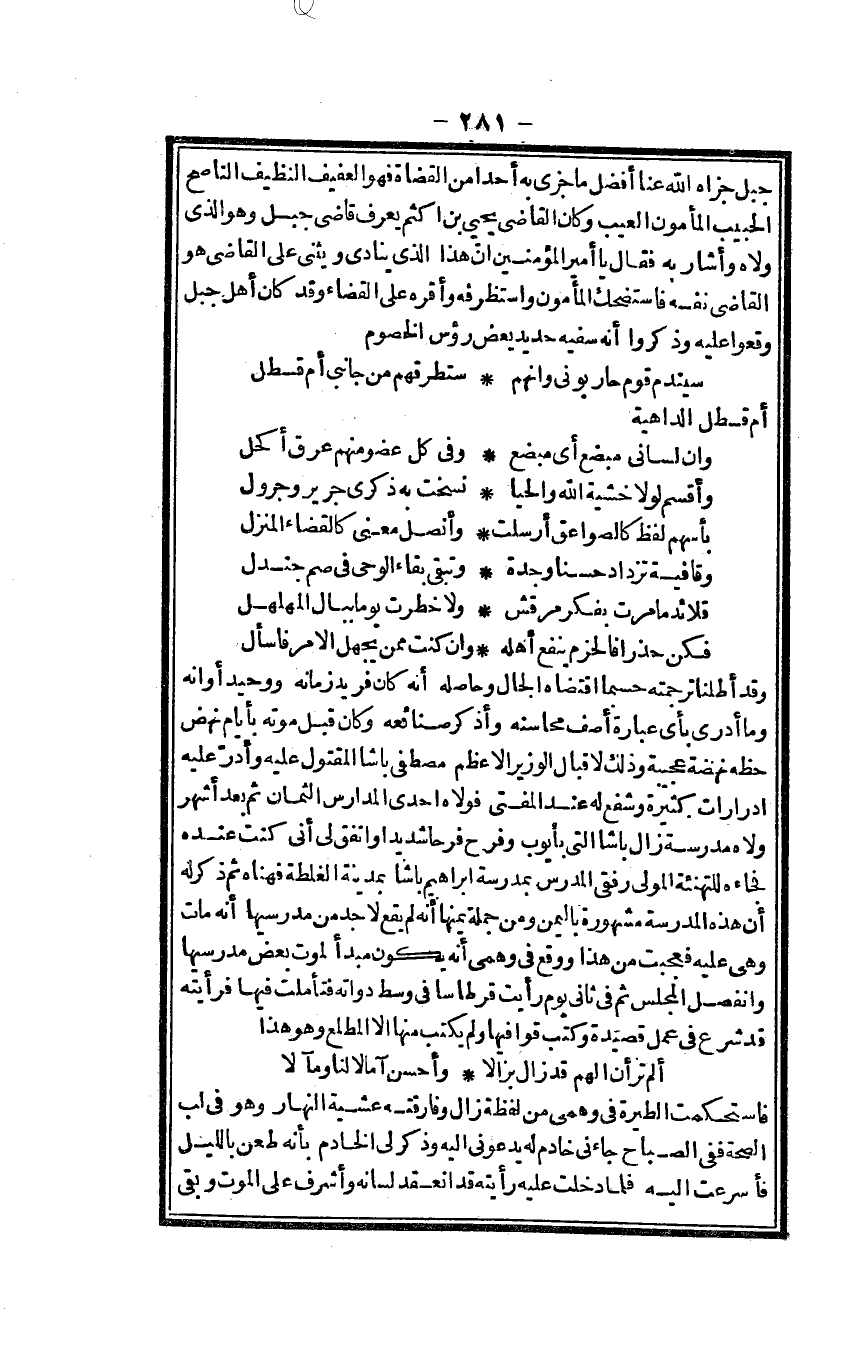 – ٢٨١ –
جبل جزاه الله عنا أفضل ما جزى به أحدا من القضاة فهو العفيف النظيف الناصح
الحبيب المأمون العيب وكان القاضى يحيى بن اكثم يعرف قاضى جبل وهو الذى
ولاه وأشار به فقال يا أمير المؤمنين ان هذا الذى ينادى ويثنى على القاضى هو
القاضى نفسه فاستضحك المأمون واستظرفه وأقره على القضاء وقد كان أهل جبل
وقعوا عليه وذكروا أنه سفيه حديد يعض رؤس الخصوم
سيندم قوم حاربونى وانهم * ستطرقهم من جانبى أم قسطل
أم قسطل الداهية
وان لسانى مبضع أى مبضع * وفى كل عضو منهم عرق أكحل
وأقسم لولا خشية الله والحيا * نسخت به ذكرى جرير وجرول
بأسهم لفظ كالصواعق أرسلت * وأنصل معنى كالقضاء المنزل
وقافية تزداد حسنا وجدة * وتبقى بقاء الوحى فى صم جندل
قلائد ما مرت بفكر مرقش * ولا خطرت يوما ببال المهلهل
فكن حذرا فالحزم ينفع أهله * وان كنت ممن يجهل الامر فاسأل
وقد أطلنا ترجمته حسبما اقتضاه الحال وحاصله أنه كان فريد زمانه ووحيد أوانه
وما أدرى بأى عبارة أصف محاسنه وأذكر صنائعه وكان قبل موته بأيام نهض
حظه نهضة عجيبة وذلك لاقبال الوزير الاعظم مصطفى باشا المقتول عليه وأدرّ عليه
ادرارات كثيرة وشفع له عند المفتى فولاه احدى المدارس الثمان ثم بعد أشهر
ولاه مدرسة زال باشا التى بأيوب وفرح فرحا شديدا واتفق لى أنى كنت عنده
فجاءه للتهنئة المولى رفقى المدرس بمدرسة ابراهيم باشا بمدينة الغلطة فهناه ثم ذكر له
أن هذه المدرسة مشهورة باليمن ومن جملة يمنها أنه لم يقع لاحد من مدرسيها أنه مات
وهى عليه فعجبت من هذا ووقع فى وهمى أنه يكون مبدأ لموت بعض مدرسيها
وانفصل المجلس ثم فى ثانى يوم رأيت قرطاسا فى وسط دواته فتأملت فيها فرأيته
قد شرع فى عمل قصيدة وكتب قوافيها ولم يكتب منها الا المطلع وهو هذا
ألم ترأن الهم قد زال بزالا * وأحسن آمالا لنا ومآ لا
فاستحكمت الطيرة فى وهمى من لفظة زال وفارقته عشية النهار وهو فى لب
الصحة ففى الصباح جاءنى خادم له يدعونى اليه وذكر لى الخادم بأنه طعن بالليل
فأسرعت اليه فلما دخلت عليه رأيته قد انعقد لسانه وأشرف على الموت وبقى